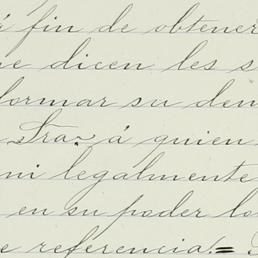 á fin de obtener
ue dicen les s
formar su dem
Sra. á quien
ni legalmente
en su poder lo
e referencia.=